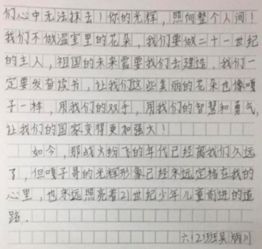 们心中无法抹去!你的光辉,照何整个人间!
我们不做温室里的花朵,我们要做二十一世纪
的主人,祖国的未来需要我们去建设,我们一
定要发奋读书,让我们这些美丽的花朵也像嗄
子一样,用我们的双手,用我们的智慧和勇气,
让我们的国家变得更加强大!
如今,那战火纷飞的年代已经离我们久远
了,但嗄子哥的光辉形象已经永远定格在我的
心里,也永远照亮着21世纪少年儿童前进的道
路.
六(2)班吴